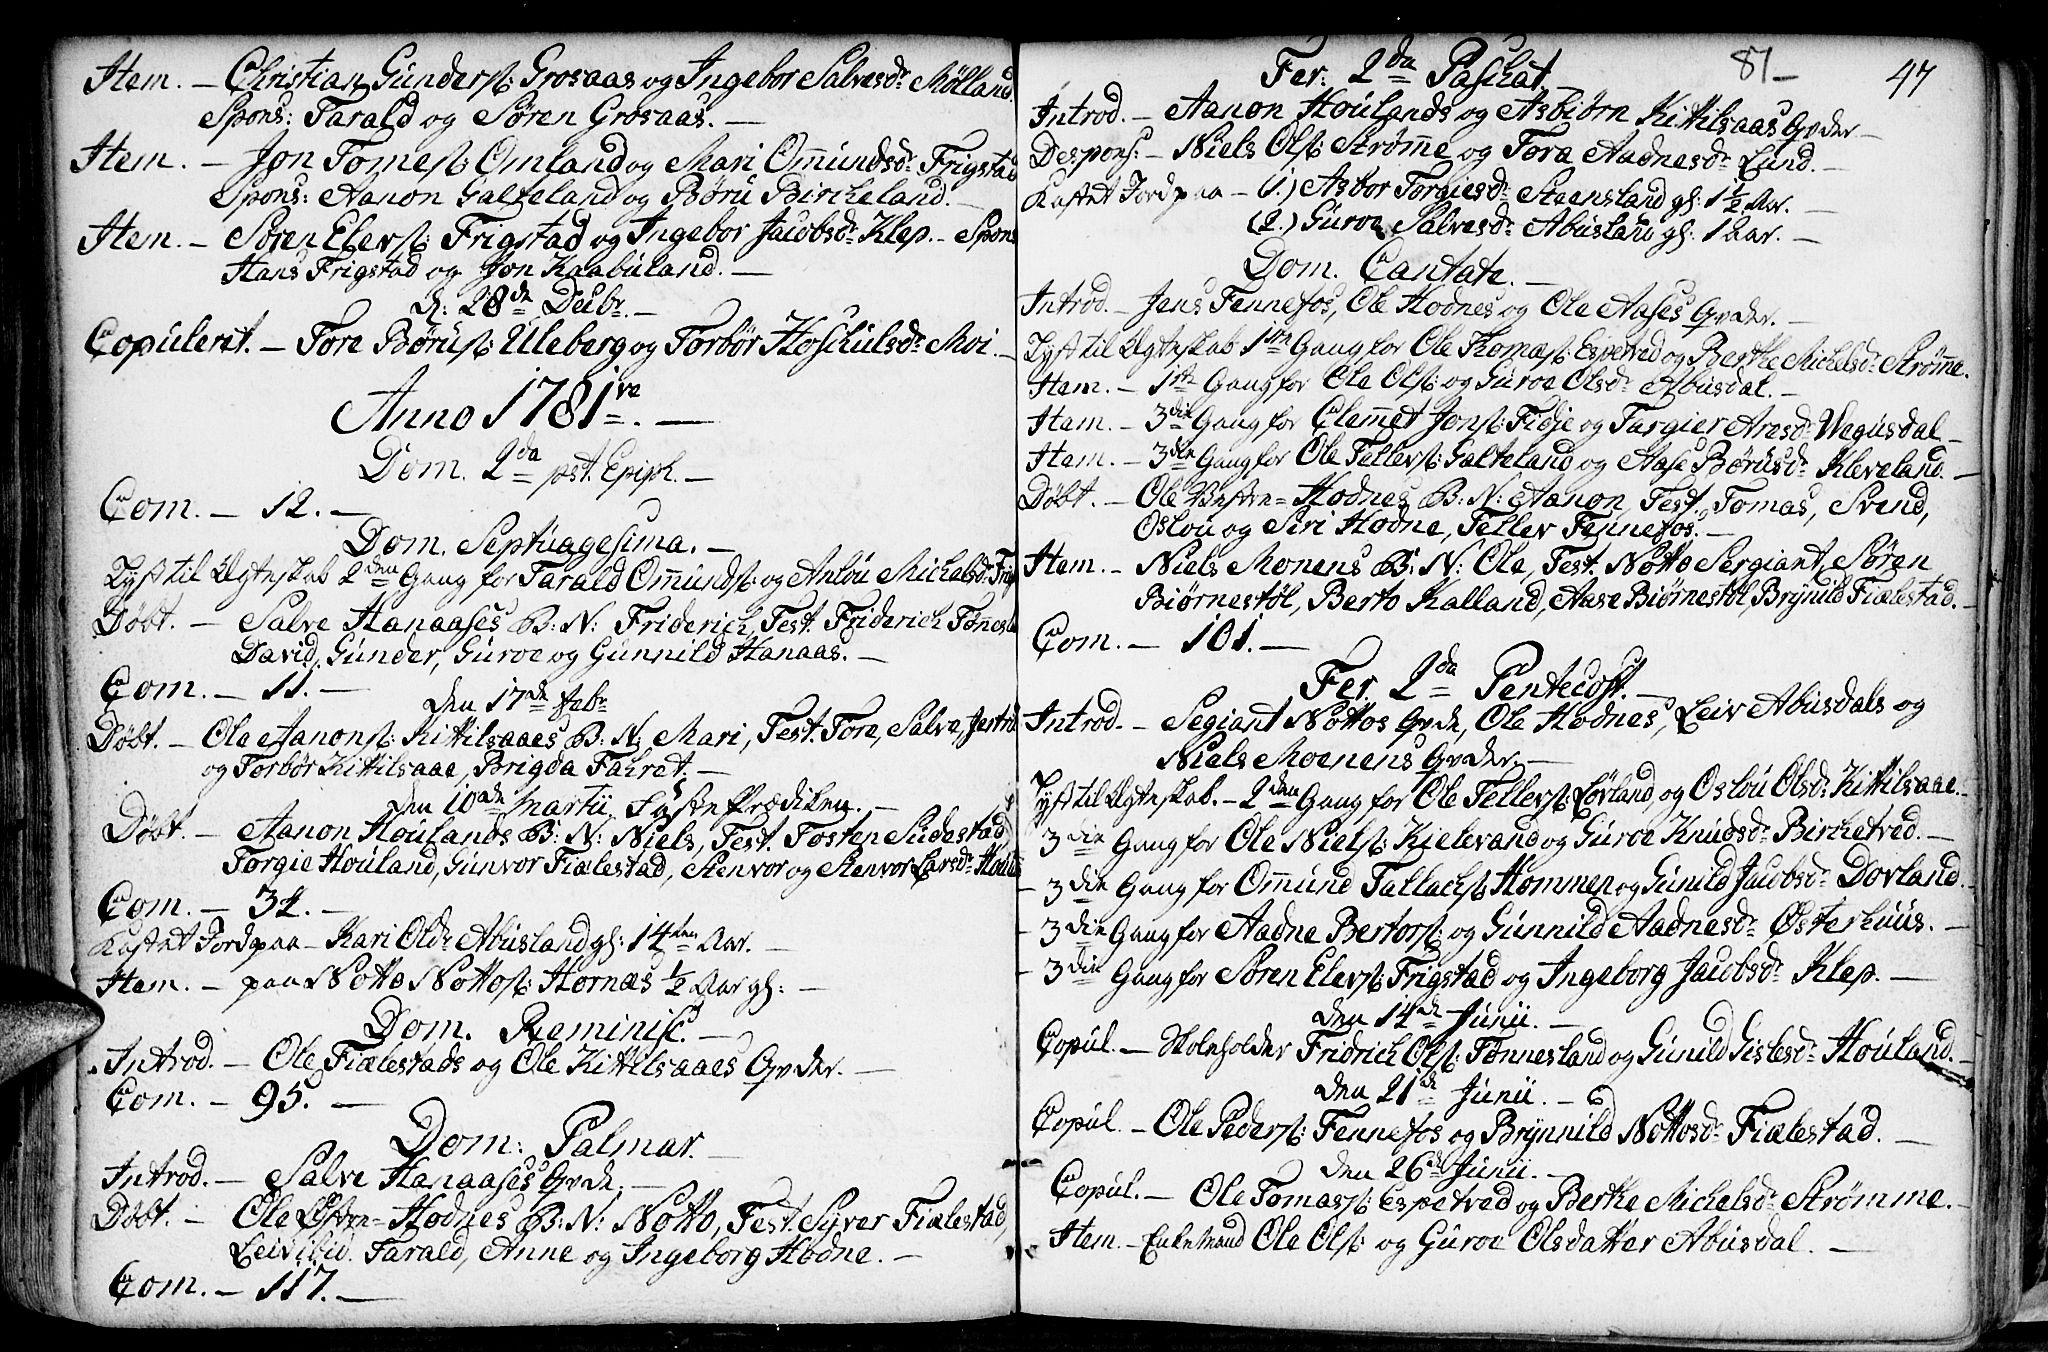 Item. – Christian Gunders: Grosaas og Ingebor Salvesdr Mølland.
Spons: Tarald og Søren Grosaas. –
Item. – Jon Tomes: Omland og Mari Omundsdr Frigstad
Spons: Aanon Galteland og Børu Bircheland. –
Item. – Søren Elevs: Frigstad og Ingebor Jacobsdr Klep. – Spons
Hans Frigstad og Jon Kaabuland. –
d: 28de Decbr. –
Copuleret. – Tore Børus: Uleberg og Torbør Hoschulsdr Moi. –
Anno 1781ve. –
Dom. 2da post Epiph. –
Com. – 12. –
Dom. Septuagesima. –
Lyst til Ægteskab 2den Gang for Tarald Omunds: og Anlou Michelsdr Frigs
Døbt. – Salve Hanaases B: N: Friderich, Test. Friderich Tønnesla
David, Gunder, Guroe og Gunnild Hanaas. –
Com. – 11. –
den 17de Febr
Døbt. – Ole Aanons: Kittilsaaes B: N: Mari, Test. Tore, Salve, Jertrud
og Torbør Kittilsaae, Brigda Fahret. –
den 10de Martii, Fastepræediken. –
Døbt. – Aanon Houlands B: N: Niels, Test. Tosten Sudestad
Torgie Houland, Gunvor Fiælestad, Stenvor og Stenvor Larsdr Houla
Com. – 34. –
Kastet Jord paa – Kari Olsdr Abusland gl: 14ten Aar. –
Item. – paa Notto Nottos: Hornæs 1/2 Aar gl: –
Dom. Reminisc. –
Introd. – Ole Fiælestads og Ole Kittilsaaes Qvder. –
Com. – 95. –
Dom: Palmar. –
Introd. – Salve Hanaases Qvde. –
Døbt. – Ole Østre = Hodnes B: N: Notto, Test. Syver Fiælestad,
Leiv ibid. Tarald, Anne og Ingeborg Hodne. –
Com. – 117. –
81 –
47
Fer. 2da Paschat. –
Introd. – Aanon Houlands og Asbiørn Kittilsaas Qvder –
Despons: – Niels Ols: Strømme og Tora Aadnesdr Lund. –
Kastet Jord paa – (1.) Asbor Torgiesdr Steensland gl: 1 1/2 Aar. –
(2.) Guroe Salvesdr Abusland gl: 1 Aar. –
Dom. Cantate. –
Introd. – Jens Fennefos, Ole Hodnes og Ole Aases Qvder. –
Lyst til Ægteskab 1ste Gang for Ole Thomæs: Espetved og Berthe Michelsdr Strømme.
Item. – 1ste Gang for Ole Ols: og Guroe Olsdr Abusdal. –
Item. – 3die Gang for Clemet Jons: Fidje og Targier Aresdr Wegusdal –
Item. – 3die Gang for Ole Tellevs: Galteland og Aase Børusdr Kleveland. –
Døbt. – Ole Vestre = Hodnes B: N: Aanon, Test. Tomas, Svend,
Oslou og Siri Hodne, Tellev Fennefos. –
Item. – Niels Monens B: N: Ole, Test. Notto Sergiant, Søren
Biørnestøl, Berto Kalland, Aase Biørnestøl, Brynild Fiælestad. –
Com. – 101. –
Fer. 2da Pentecost. –
Introd. – Segiant Nottos Qvde, Ole Hodnes, Leiv Abusdals og
Niels Moenens Qvder. –
Lyst til Ægteskab. – 2den Gang for Ole Tellevs: Løvland og Oslou Olsdr Kittilsaae. –
3die Gang for Ole Niels: Kielevand og Guroe Knudsdr Birchetved. –
– 3die Gang for Omund Tallachs: Hommen og Gunild Jacobsdr Dovland. –
– 3die Gang for Aadne Bertors: og Gunnild Aadnesdr Østerhuus. –
– 3die Gang for Søren Elevs: Frigstad og Ingeborg Jacobsdr Klep. –
den 14de Junii. –
Copul. – Skoleholder Fridrich Ols: Tønnesland og Gunild Gislesdr Houland. –
den 21de Junii. –
Copul. – Ole Peders: Fennefos og Brynnild Nottosdr Fiælestad. –
den 26de Junii. –
Copul. – Ole Tomass: Espetved og Berthe Michelsdr Strømme. –
Item. – Enkemand Ole Ols: og Guroe Olsdatter Abusdal. –